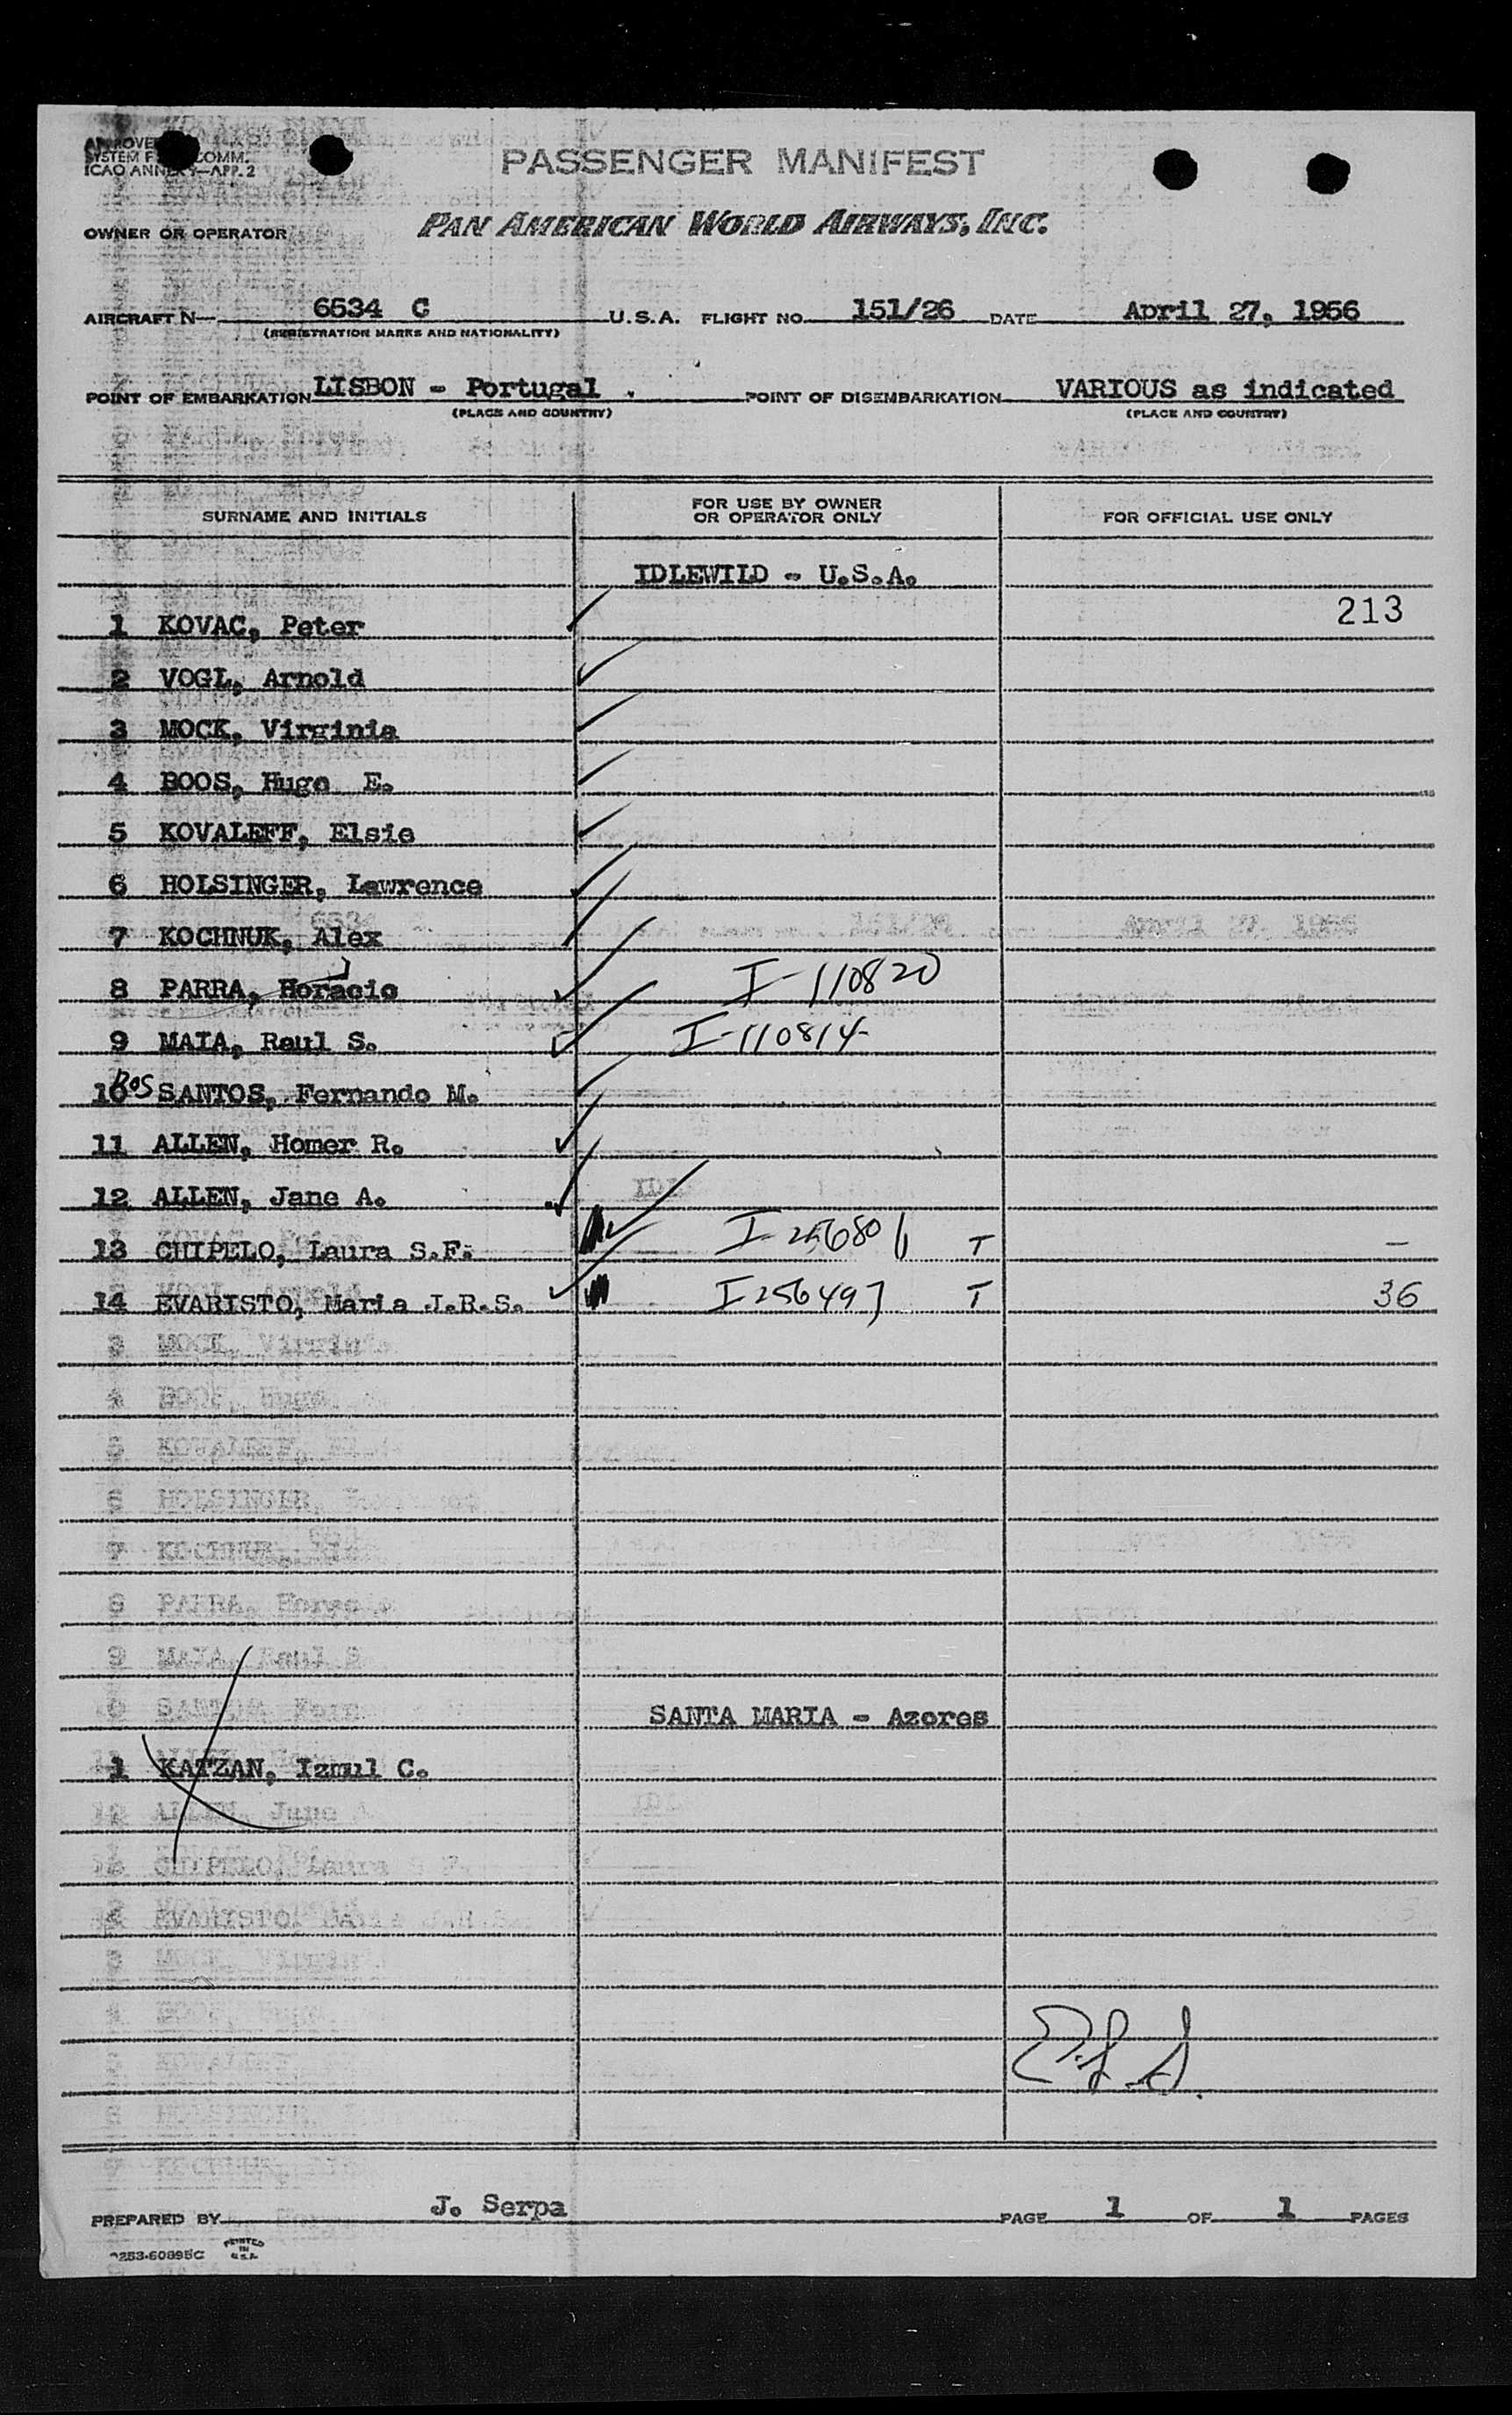 APPROVE
SYSTEM F COMM.
ICAO ANNEX 9—APP. 2
PASSENGER MANIFEST
OWNER OR OPERATOR
PAN AMERICAN WORLD AIRWAYS, INC.
AIRCRAFT N— 6534 C U.S.A. FLIGHT NO. 151/26 DATE April 27, 1956
(REGISTRATION MARKS AND NATIONALITY)
POINT OF EMBARKATION LISBON - Portugal . POINT OF DISEMBARKATION VARIOUS as indicated
(PLACE AND COUNTRY) (PLACE AND COUNTRY)
SURNAME AND INITIALS FOR USE BY OWNER OR OPERATOR ONLY FOR OFFICIAL USE ONLY
IDLEWILD - U.S.A.
1 KOVAC, Peter 213
2 VOGL, Arnold
3 MOCK, Virginia
4 BOOS, Hugo E.
5 KOVALEFF, Elsie
6 HOLSINGER, Lawrence
7 KOCHNUK, Alex
8 PARRA, Horacio I-110820
9 MAIA, Raul S. I-110814
10 Ros SANTOS, Fernando M.
11 ALLEN, Homer R.
12 ALLEN, Jane A.
13 CHIPELO, Laura S.F. I-256801 T —
14 EVARISTO, Maria J.R.S. I256497 T 36
SANTA MARIA - Azores
1 KATZAN, Izmul C.
PREPARED BY J. Serpa PAGE 1 OF 1 PAGES
PRINTED IN U.S.A.